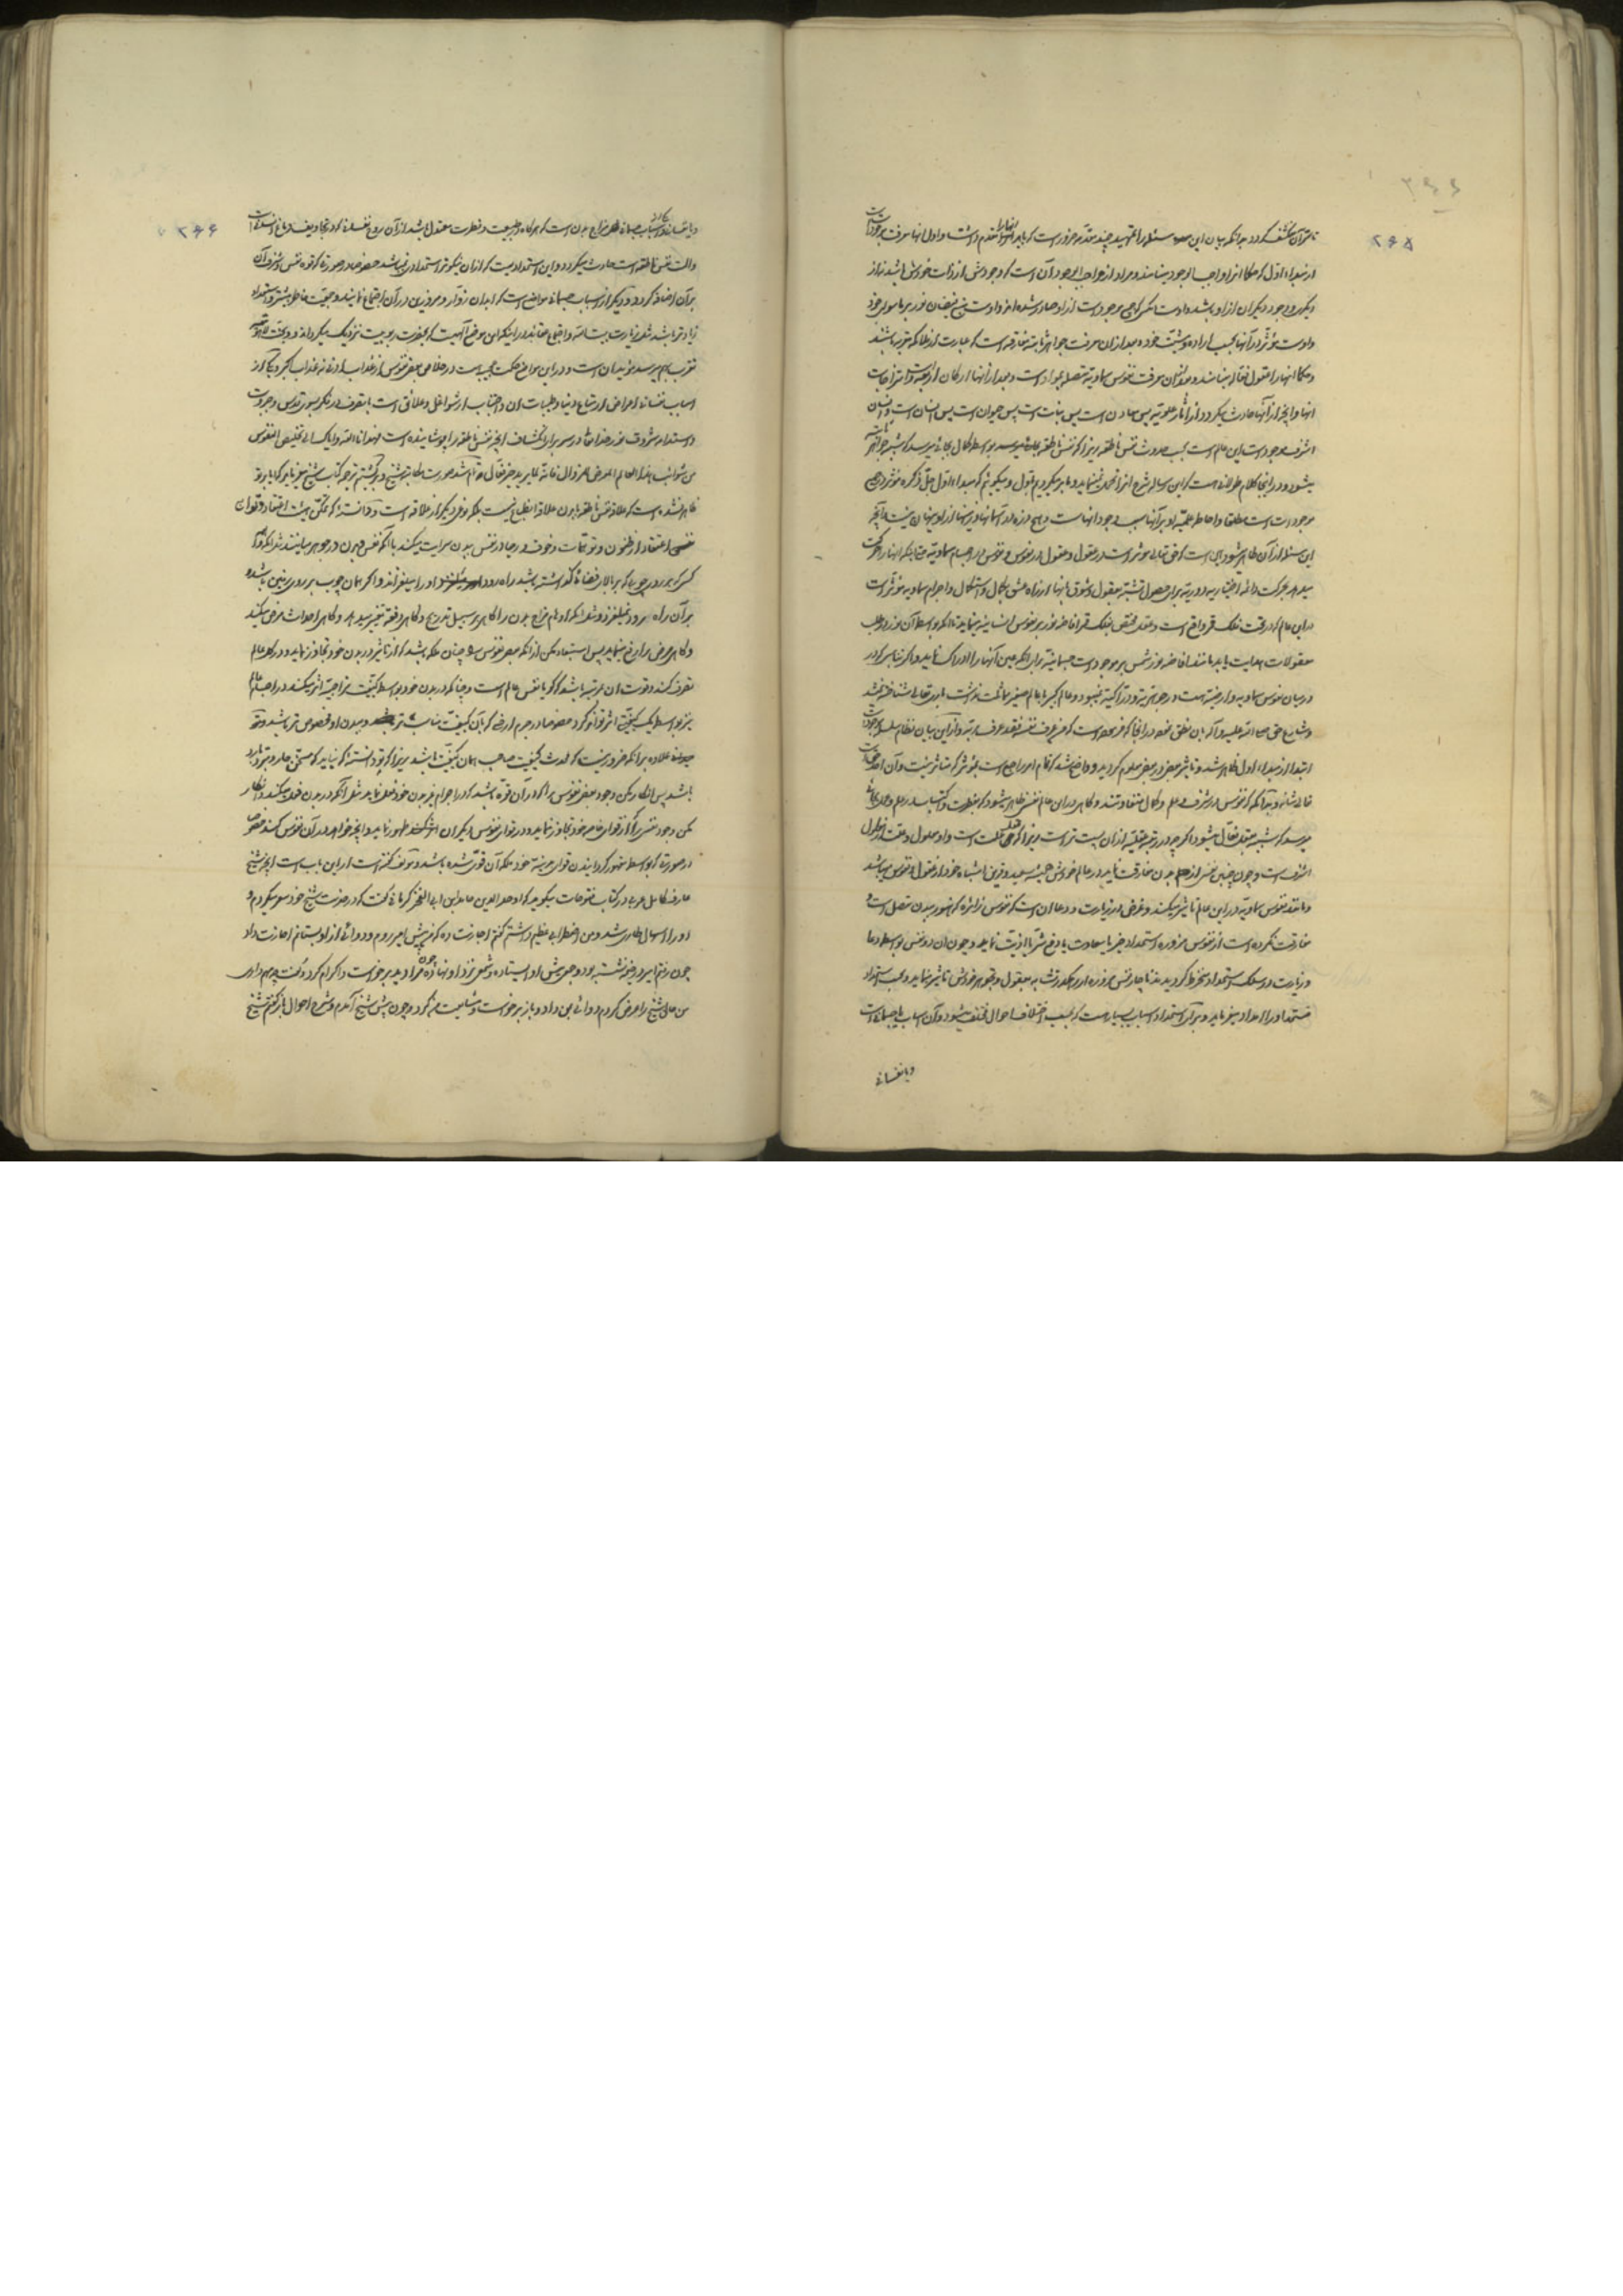 ۲۶۵
تا سر آن منکشف گردد بدانکه بیان این مسئله را تمهید چند مقدمه ضرور است که باید آنها را مقدم داشت و اول آنها معرفت موجودات است
از مبداء اول که حکما او را واجب الوجود مینامند و مراد از واجب الوجود آن است که وجودش از ذات خودش باشد نه از
دیگری و وجود دیگران از او باشد و اوست
و اوست مؤثر در آنها بحسب اراده و مشیت خود و بعد از آن معرفت جواهر ثابته مفارقه است که عبارت از ملائکه مقربه باشند
و حکما آنها را عقول فعاله مینامند و بعد از آن معرفت نفوس سماویه متصله بمواد است و بعد از آنها ارکان اربعه و امتزاجات
آنها و آنچه از آنها حادث میگردد از آثار علویه پس معادن است پس نبات است پس حیوان است پس انسان است و انسان
اشرف موجودات این عالم است بحسب حدوث نفس ناطقه زیرا که نفس ناطقه بواسطه کمال بجائی میرسد که شبیه جواهر ثابته
میشود و در اینجا کلام طولانی است که این رساله شرح آنرا تحمل نمینماید و ما بر میگردیم باول و میگوئیم که مبداء اول جل ذکره مؤثر در جمیع
موجودات است مطلقا و احاطه علمیه او بر آنها سبب وجود آنهاست و هیچ ذره در آسمانها و زمینها از او پنهان نیست و آنچه
این مسئله از آن ظاهر میشود این است که حق تعالی مؤثر است در عقول و عقول در نفوس و نفوس در اجسام سماویه تا اینکه آنها را حرکت
میدهد بحرکت دائمه اختیاریه دوریه برای حصول تشبه بعقول و شوق بآنها از راه عشق بکمال و استکمال و اجرام سماویه مؤثر است
در این عالم که در تحت فلک قمر واقع است و عقل مختص بفلک قمر افاضه نور بر نفوس انسانیه مینماید تا آنکه بواسطه آن نور در طلب
معقولات هدایت یابد مانند افاضه نور شمس بر موجودات جسمانیه برای آنکه عین آنها را ادراک نماید و اگر تناسب که در
درمیان نفوس سماویه و ارضیه است در جوهریت و دراکیت نمیبود و عالم کبیر با عالم صغیر مماثلت نداشت باری تعالی شناخته نمیشد
و شارع حق صلی الله علیه و آله باین نطق فرموده در آنجا که فرموده است که من عرف نفسه فقد عرف ربه و از این بیان نظام سلسله موجودات
ابتدا از مبداء اول ظاهر شد و تأثیر بعض در بعض معلوم گردید و واضح شد که تمام امر راجع است بمؤثری که متأثر نیست و آن احد حق است
تعالی شانه و بدانکه که نفوس در شرف و علم و کمال متفاوتند و گاهی در این عالم نفسی ظاهر میشود که بفطرت و اکتساب در علم و عمل بجائی
میرسد که شبیه بعقل فعال میشود اگرچه در رتبه عقلیه از آن پست تر است زیرا که عقل علت است و او معلول و علت از معلول
اشرف است و چون چنین نفس از بدن مفارقت نماید در عالم خودش همیشه سعید و قرین اشباه خود از عقول و نفوس میباشد
و مانند نفوس سماویه در این عالم تأثیر میکند و غرض از زیارت و دعا آن است که نفوس زائره که هنوز ببدن متصل است و
مفارقت نکرده است از نفوس مزوره استمداد خیر یا سعادت یا دفع شر یا اذیت نماید و چون آن نفس بواسطه دعا
و زیارت در سلک استمداد منخرط گردیدند ناچار نفس مزوره از جهت تشابه بعقول و بجوهر خودش تأثیر مینماید و بحسب استمداد
مستمد او را امداد میفرماید و برای استمداد اسباب بسیار است که بحسب اختلاف احوال مختلف میشود و آن اسباب یا جسمانی است
و یا نفسانی
۲۶۶
و یا نفسانی و اسباب جسمانی مزاج بدن است که هرگاه در طبیعت و فطرت معتدل باشد از آن روح نفسانی که در تجاویف دماغ
و آلت نفس ناطقه است حادث میگردد و این استعدادیست که از آن نیکوتر استعدادی نمیباشد خصوصا در صورتی که قوه نفس و شرف آن
بر آن اضافه گردد و دیگر از اسباب جسمانی مواضع است که ابدان زوار و مزورین در آن اجتماع نمایند و جمعیت خاطر بیشتر و استعداد
زیادتر باشد مثل زیارت بیت الله و اجتماع عقاید در اینکه این موضع الهیت که بحضرت ربوبیت نزدیک میگرداند و
تقرب بهم میرسد و در این مواضع حکمت عجیب است در خلاصی بعض نفوس از عذاب ادنی نه عذاب اکبر و دیگر از
اسباب نفسانی اعراض از متاع دنیا و طیبات آن و اجتناب از شواغل و علائق است با تصرف فکر بسوی قدس و جبروت
و استدامت شروق نور خدا تعالی در سر برای انکشاف آنچه نفس ناطقه را پوشانیده است فهدانا الله و ایاک الی تخلیص النفوس
من شوائب هذا العالم المعرض للزوال فانه لما یرید خبر فعال
ظاهر شده است که علاقه نفس ناطقه با بدن علاقه انطباع نیست بلکه نوعی دیگر از علاقه است و دانسته که تمکن هیئت اعتقاد و توهمات
نفسی اعتقاد از ظنون و توهمات و خوف و رجا در نفس ببدن سرایت میکند با آنکه نفس و بدن در جوهر مباینند نه بینی که
کسی که بر روی چوبی که بر بالای فضائی گذاشته باشد راه رود او را میلغزاند و اگر همان چوب بر روی زمین باشد و
بر آن راه رود نمیلغزد و مثل اینکه اوهام مزاج بدن را گاهی بر سبیل تدریج و گاهی دفعة تغییر میدهد و گاهی احداث مرض میکند
و گاهی مرض را رفع مینماید پس استبعاد مکن از آنکه بعض نفوس را چنان ملکه باشد که از تأثیر در بدن خود تجاوز نماید و در کل عالم
تصرف کند و قوت آن بمرتبه باشد که گویا نفس عالم است و چنانکه در بدن خود بواسطه کیفیت مزاجیه اثر میکند در اجسام عالم
نیز بواسطه یک کیفیتی اثر تواند کرد خصوصا در جرم ارضی که بآن کیفیت مناسب تر و ببدن او مخصوص تر باشد
علاوه بر آنکه ضرور نیست که محدث کیفیت صاحب همان کیفیت باشد زیرا که تو دانسته که نباید که مسخن حار و مبرد بارد
باشد پس انکار مکن وجود بعض نفوس را که در آن قوه باشد که در اجرام غیر بدن خود فعل نماید مثل آنکه در بدن خود میکند و انکار
مکن وجود نفسی را که از قوای خاصه خود تجاوز نماید و در قوای نفوس دیگران اثر کند و آنچه خواهد در آن نفوس کند خصوصا
در صورتی که بواسطه مقهور گردانیدن قوای بدنیه خود ملکه آن قوی شده باشد و مؤلف گفته است از این باب است آنچه شیخ
عارف کامل عربی در کتاب فتوحات میگوید که اوحد الدین حامد ابن ابی الفخر کرمانی گفت که در خدمت شیخ خود سفر میکردم و
او را اسهال طاری شد و من اضطرابی عظیم داشتم گفتم اجازت ده که من پیش امیر روم و دوائی از او بستانم اجازت داد
چون رفتم امیر در خیمه نشسته بود و جمعی پیش او ایستاده و شمعی نزد او نهاده چون مرا دید برخواست و اکرام کرد و گفت چه مهم داری
من حال شیخ را عرض کردم دوائی بمن داد و باز برخواست و مشایعت من کرد و چون پیش شیخ آمدم و شرح احوال باز گفتم شیخ